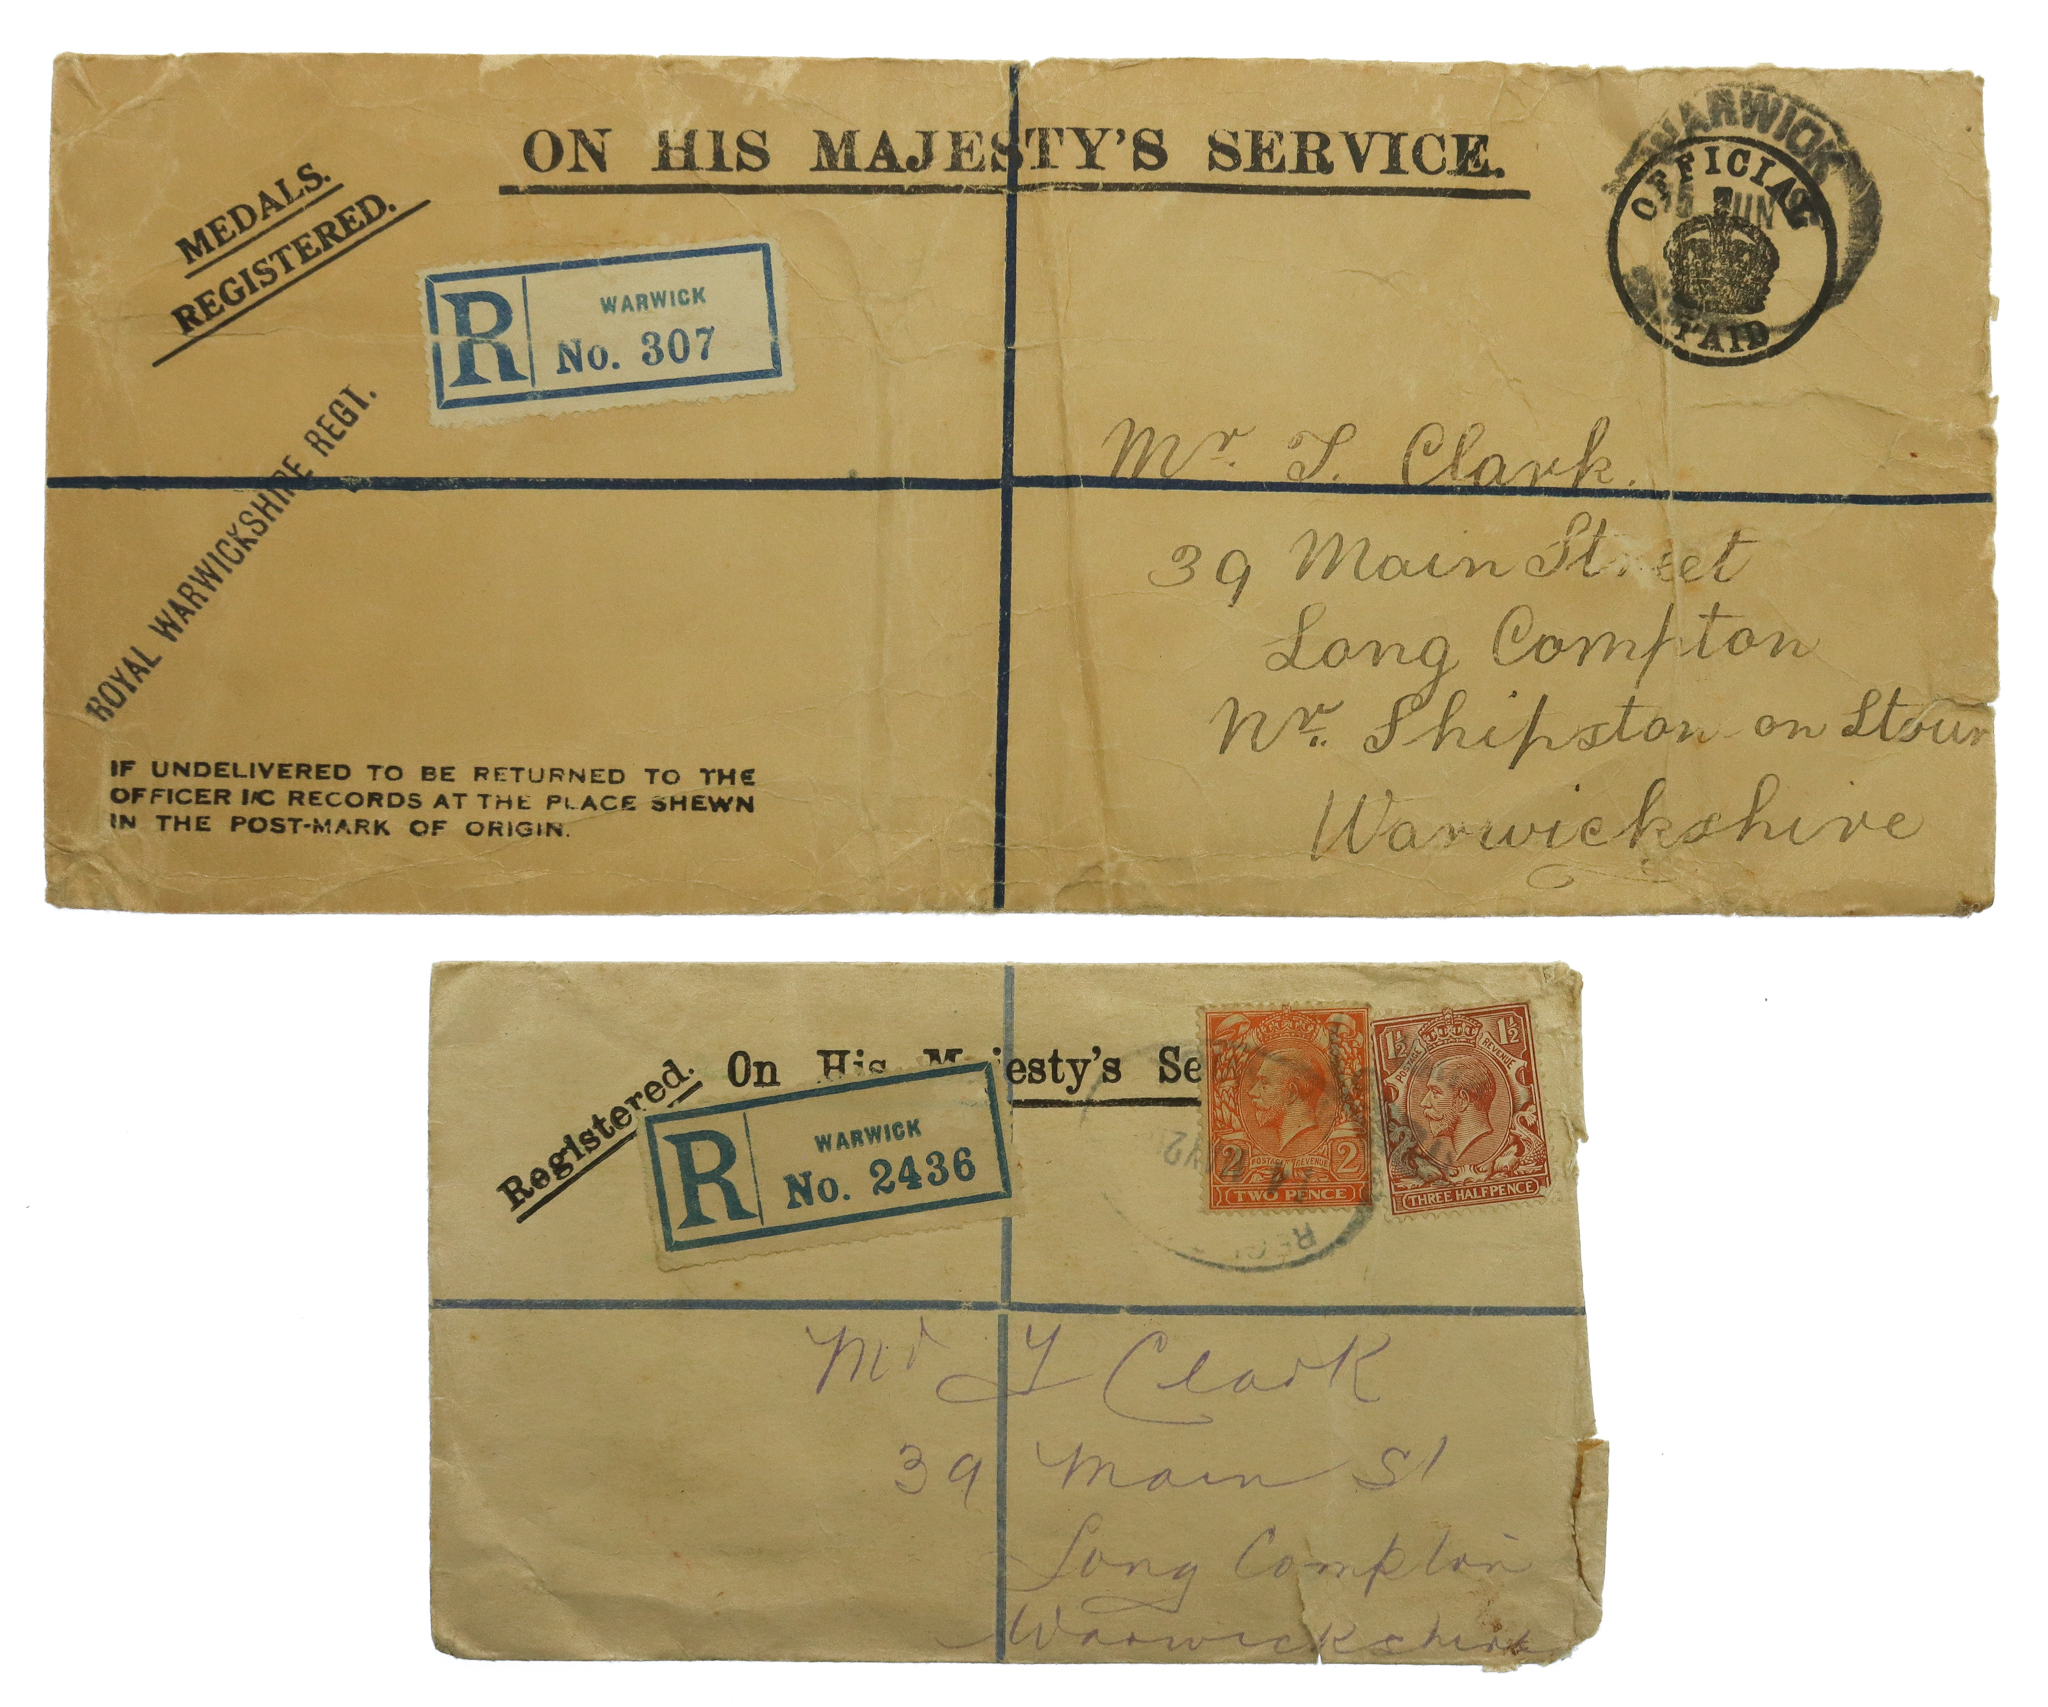 ON HIS MAJESTY'S SERVICE.
MEDALS.
REGISTERED.
WARWICK
R No. 307
WARWICK
JUN
OFFICIAL
PAID
ROYAL WARWICKSHIRE REGT.
Mr. T. Clark.
39 Main Street
Long Compton
Nr. Shipston on Stour
Warwickshire
IF UNDELIVERED TO BE RETURNED TO THE
OFFICER I/C RECORDS AT THE PLACE SHEWN
IN THE POST-MARK OF ORIGIN.
Registered.
On His Majesty's Se
WARWICK
R No. 2436
2 2
POSTAGE REVENUE
TWO PENCE
1½ 1½
POSTAGE REVENUE
THREE HALFPENCE
Mr T Clark
39 Main St
Long Compton
Warwickshire